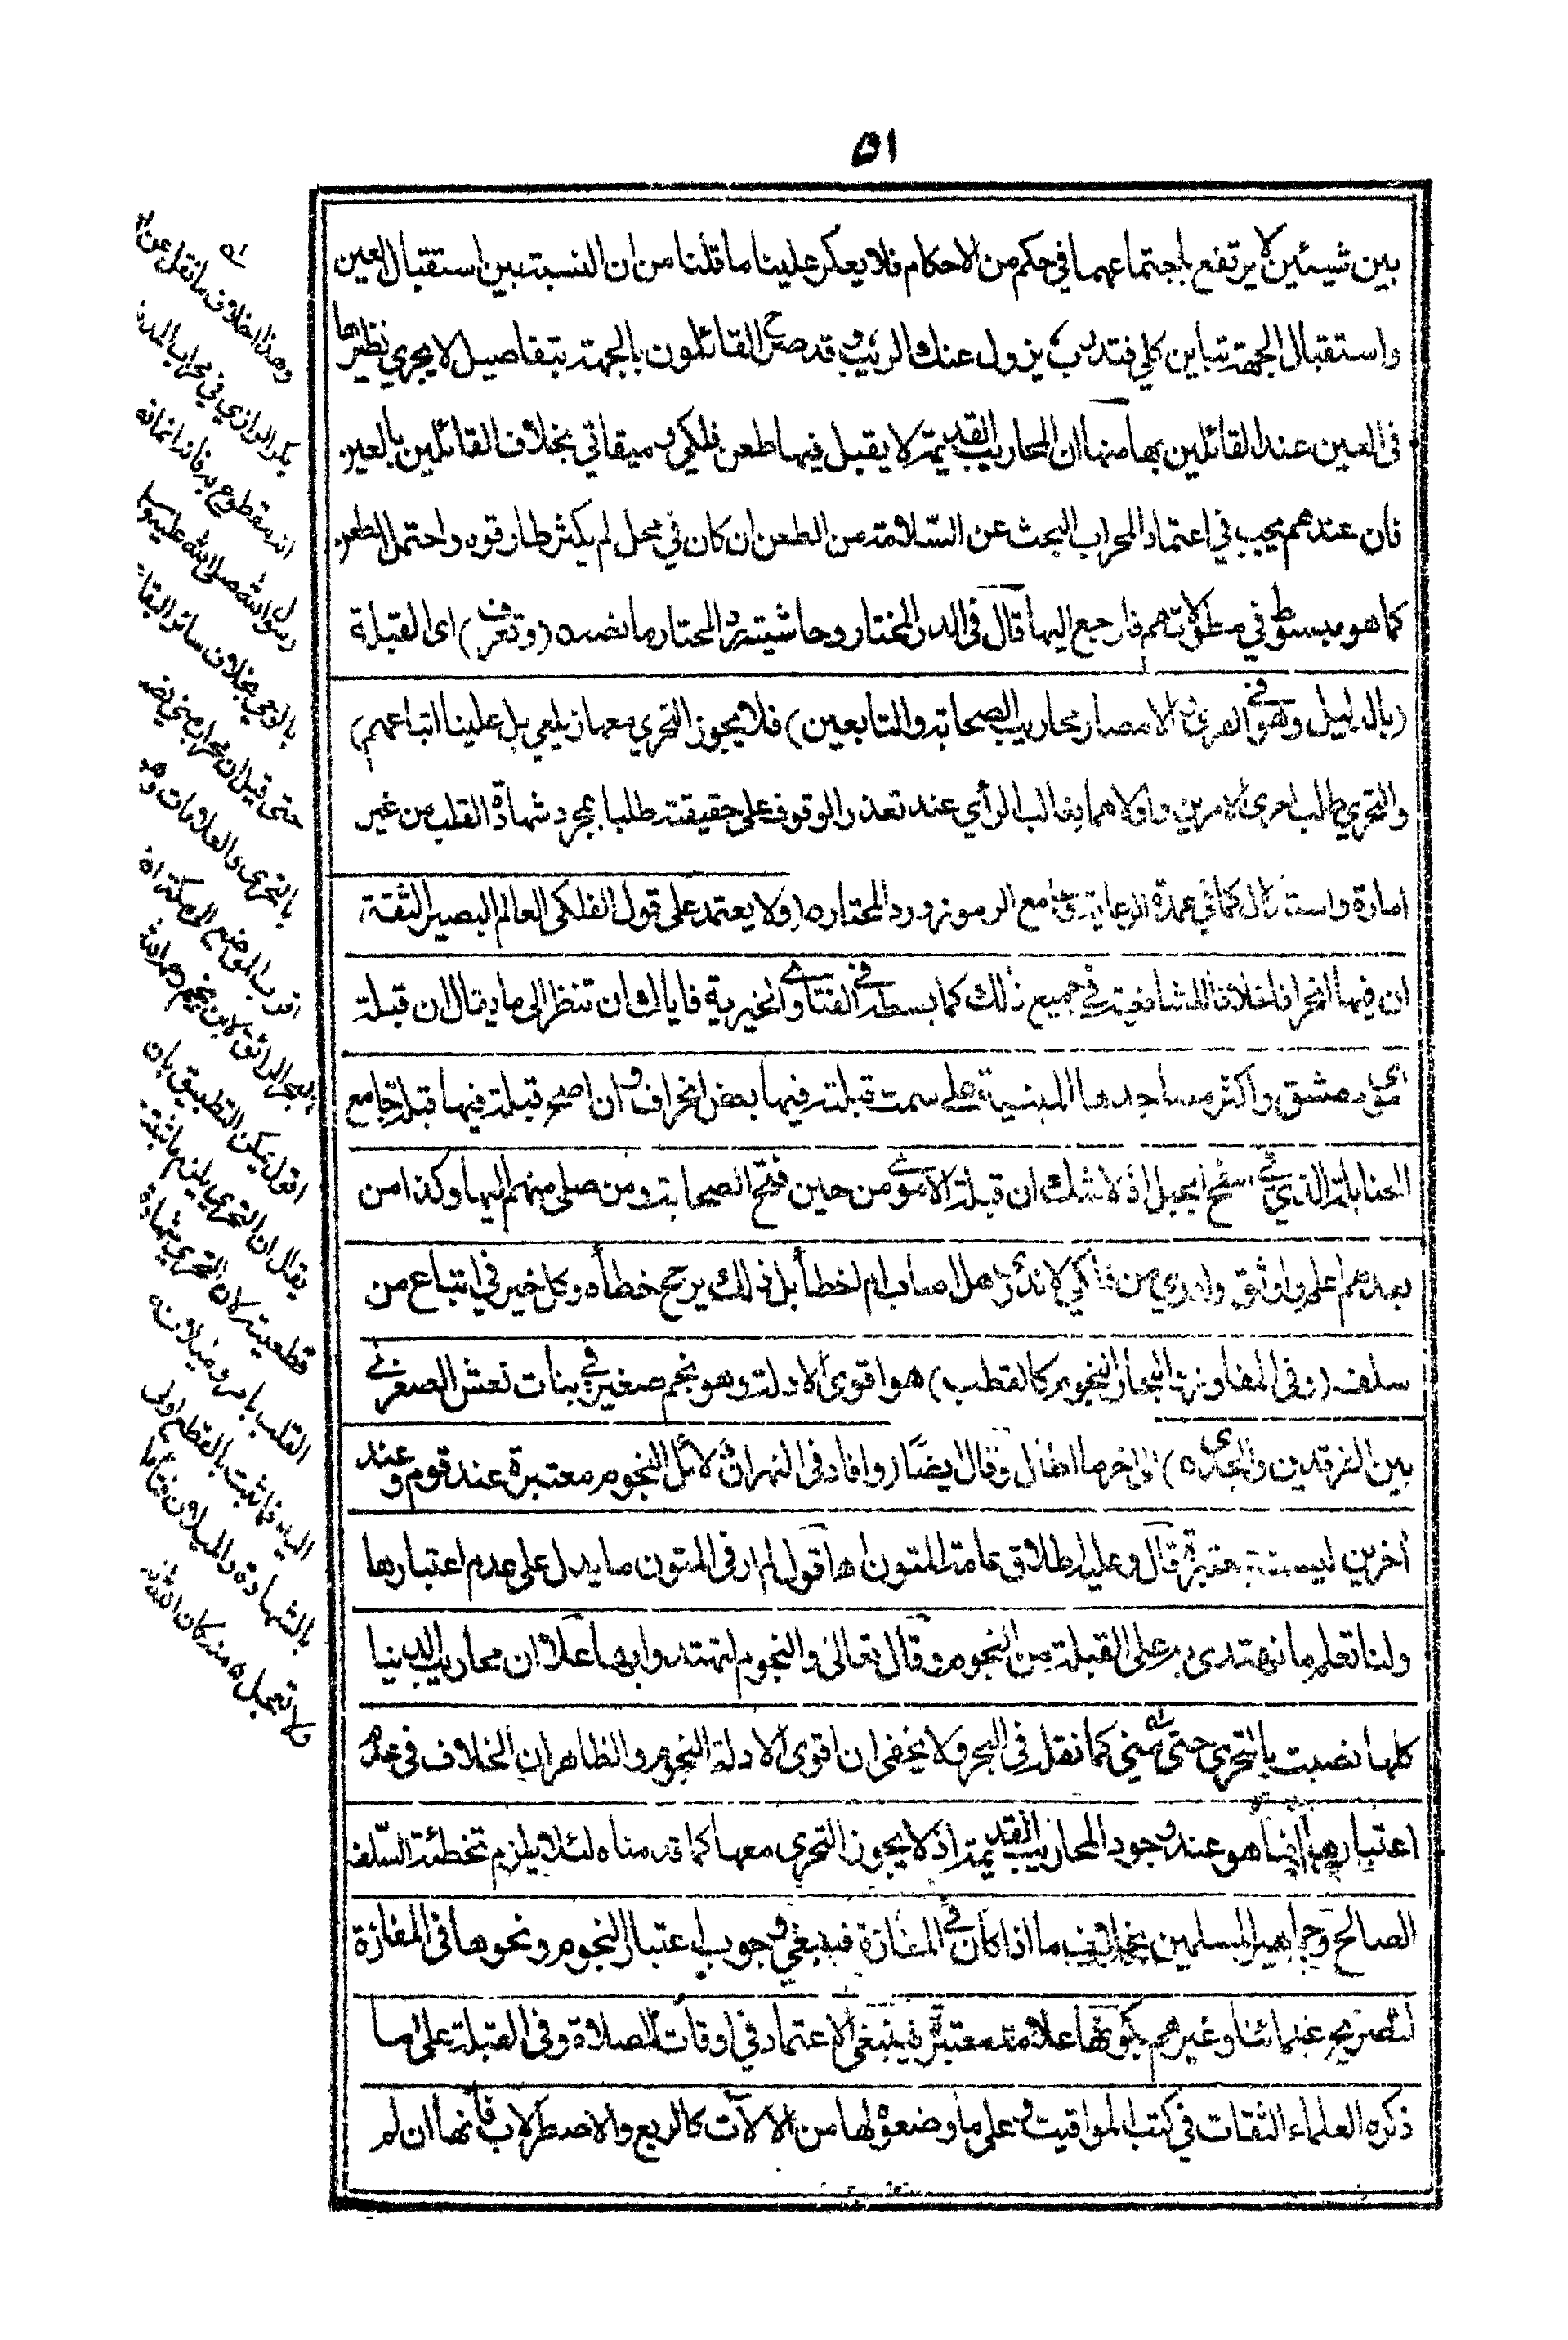 ٥١
بين شيئين لا يرتفع باجتماعهما في حكم من الاحكام فلا يعكر علينا ما قلنا من ان النسبة بين استقبال العين
واستقبال الجهة تباين كلي فتدرب يزول عنك الريب وقد صرح القائلون بالجهة بتفاصيل لا يجري نظيرها
فى العين عند القائلين بها منها ان المحاريب القديمة لا يقبل فيها طعن فلكي وميقاتي بخلاف القائلين بالعين
فان عندهم يجب في اعتماد المحراب البحث عن السّلامة من الطعن ان كان في محل لم يكثر طارقوه واحتمل الطعن
كما هو مبسوط في مطولاتهم فارجع اليها قال فى الدر المختار وحاشيته رد المحتار ما نصه (وتعرف) اى القبلة
(بالدليل وهو في القرى والامصار محاريب الصحابة والتابعين) فلا يجوز التحري معها زيلعي بل علينا اتباعهم)
والتحري طلب احرى الامرين واولاهما بغالب الرأي عند تعذر الوقوف على حقيقته طلبا بمجرد شهادة القلب من غير
امارة واستدلال كما في عمدة الرعاية وجامع الرموز ورد المحتار ه) ولا يعتمد على قول الفلكى العالم البصير الثقة
ان فيها انحرافا خلافا للشافعية في جميع ذلك كما بسطه في الفتاوى الخيرية فاياك ان تنظر الى ما يقال ان قبلة
اموي دمشق واكثر مساجدها المبنية على سمت قبلته فيها بعض انحراف وان اصح قبلة فيها قبلة جامع
الحنابلة الذي في سفح الجبل اذ لا شك ان قبلة الاموي من حين فتح الصحابة ومن صلى منهم اليها وكذا من
بعدهم اعلم واوثق وادرى من فلكي لا ندري هل اصاب ام اخطأ بل ذلك يرجح خطأه وكل خير في اتباع من
سلف (وفى المفاوز والبحار النجوم كالقطب) هو اقوى الادلة وهو نجم صغير في بنات نعش الصغرى
بين الفرقدين والجدي ه) الى اخر ما اطال وقال ايضا وافاد فى النهر ان دلائل النجوم معتبرة عند قوم وعند
أخرين ليست بمعتبرة قال وعليه اطلاق عامة المتون اه اقول لم ار فى المتون ما يدل على عدم اعتبارها
ولنا تعلم ما نهتدى به على القبلة من النجوم وقال تعالى والنجوم لتهتدوا بها علا ان محاريب الدنيا
كلها نصبت بالتحري حتى منى كما نقله فى البحر ولا يخفى ان اقوى الادلة النجوم والظاهر ان الخلاف فى عدم
اعتبارها انما هو عند وجود المحاريب القديمة اذ لا يجوز التحرى معها كما قدمناه لئلا يلزم تخطئة السّلف
الصالح وجماهير المسلمين بخلاف ما اذا كان في المفازة فينبغي وجوب اعتبار النجوم ونحوها فى المفازة
لتصريح علمائنا وغيرهم بكونها علامة معتبرة فينبغي الاعتماد في اوقات الصلاة وفى القبلة على ما
ذكره العلماء الثقات في كتب المواقيت وعلى ما وضعوه لها من الآلات كالربع والاصطرلاب فانها ان لم
وهذا خلاف ما نقل عن
بكر الرازي في محراب المدينة
انه مقطوع به فانه انما نه
رسول الله صلى الله عليه
بالوحي بخلاف سائر البقاع
حتى قيل ان محراب منى نصب
بالتحرى والعلامات وهو
اقرب المواضع الى مكة اه
البحر الرائق لابن نجيم رحمه الله
اقول يمكن التطبيق بان
يقال ان التحري
القلب
بالشهادة والميلان
ولا تعجل ه منه كان الله له